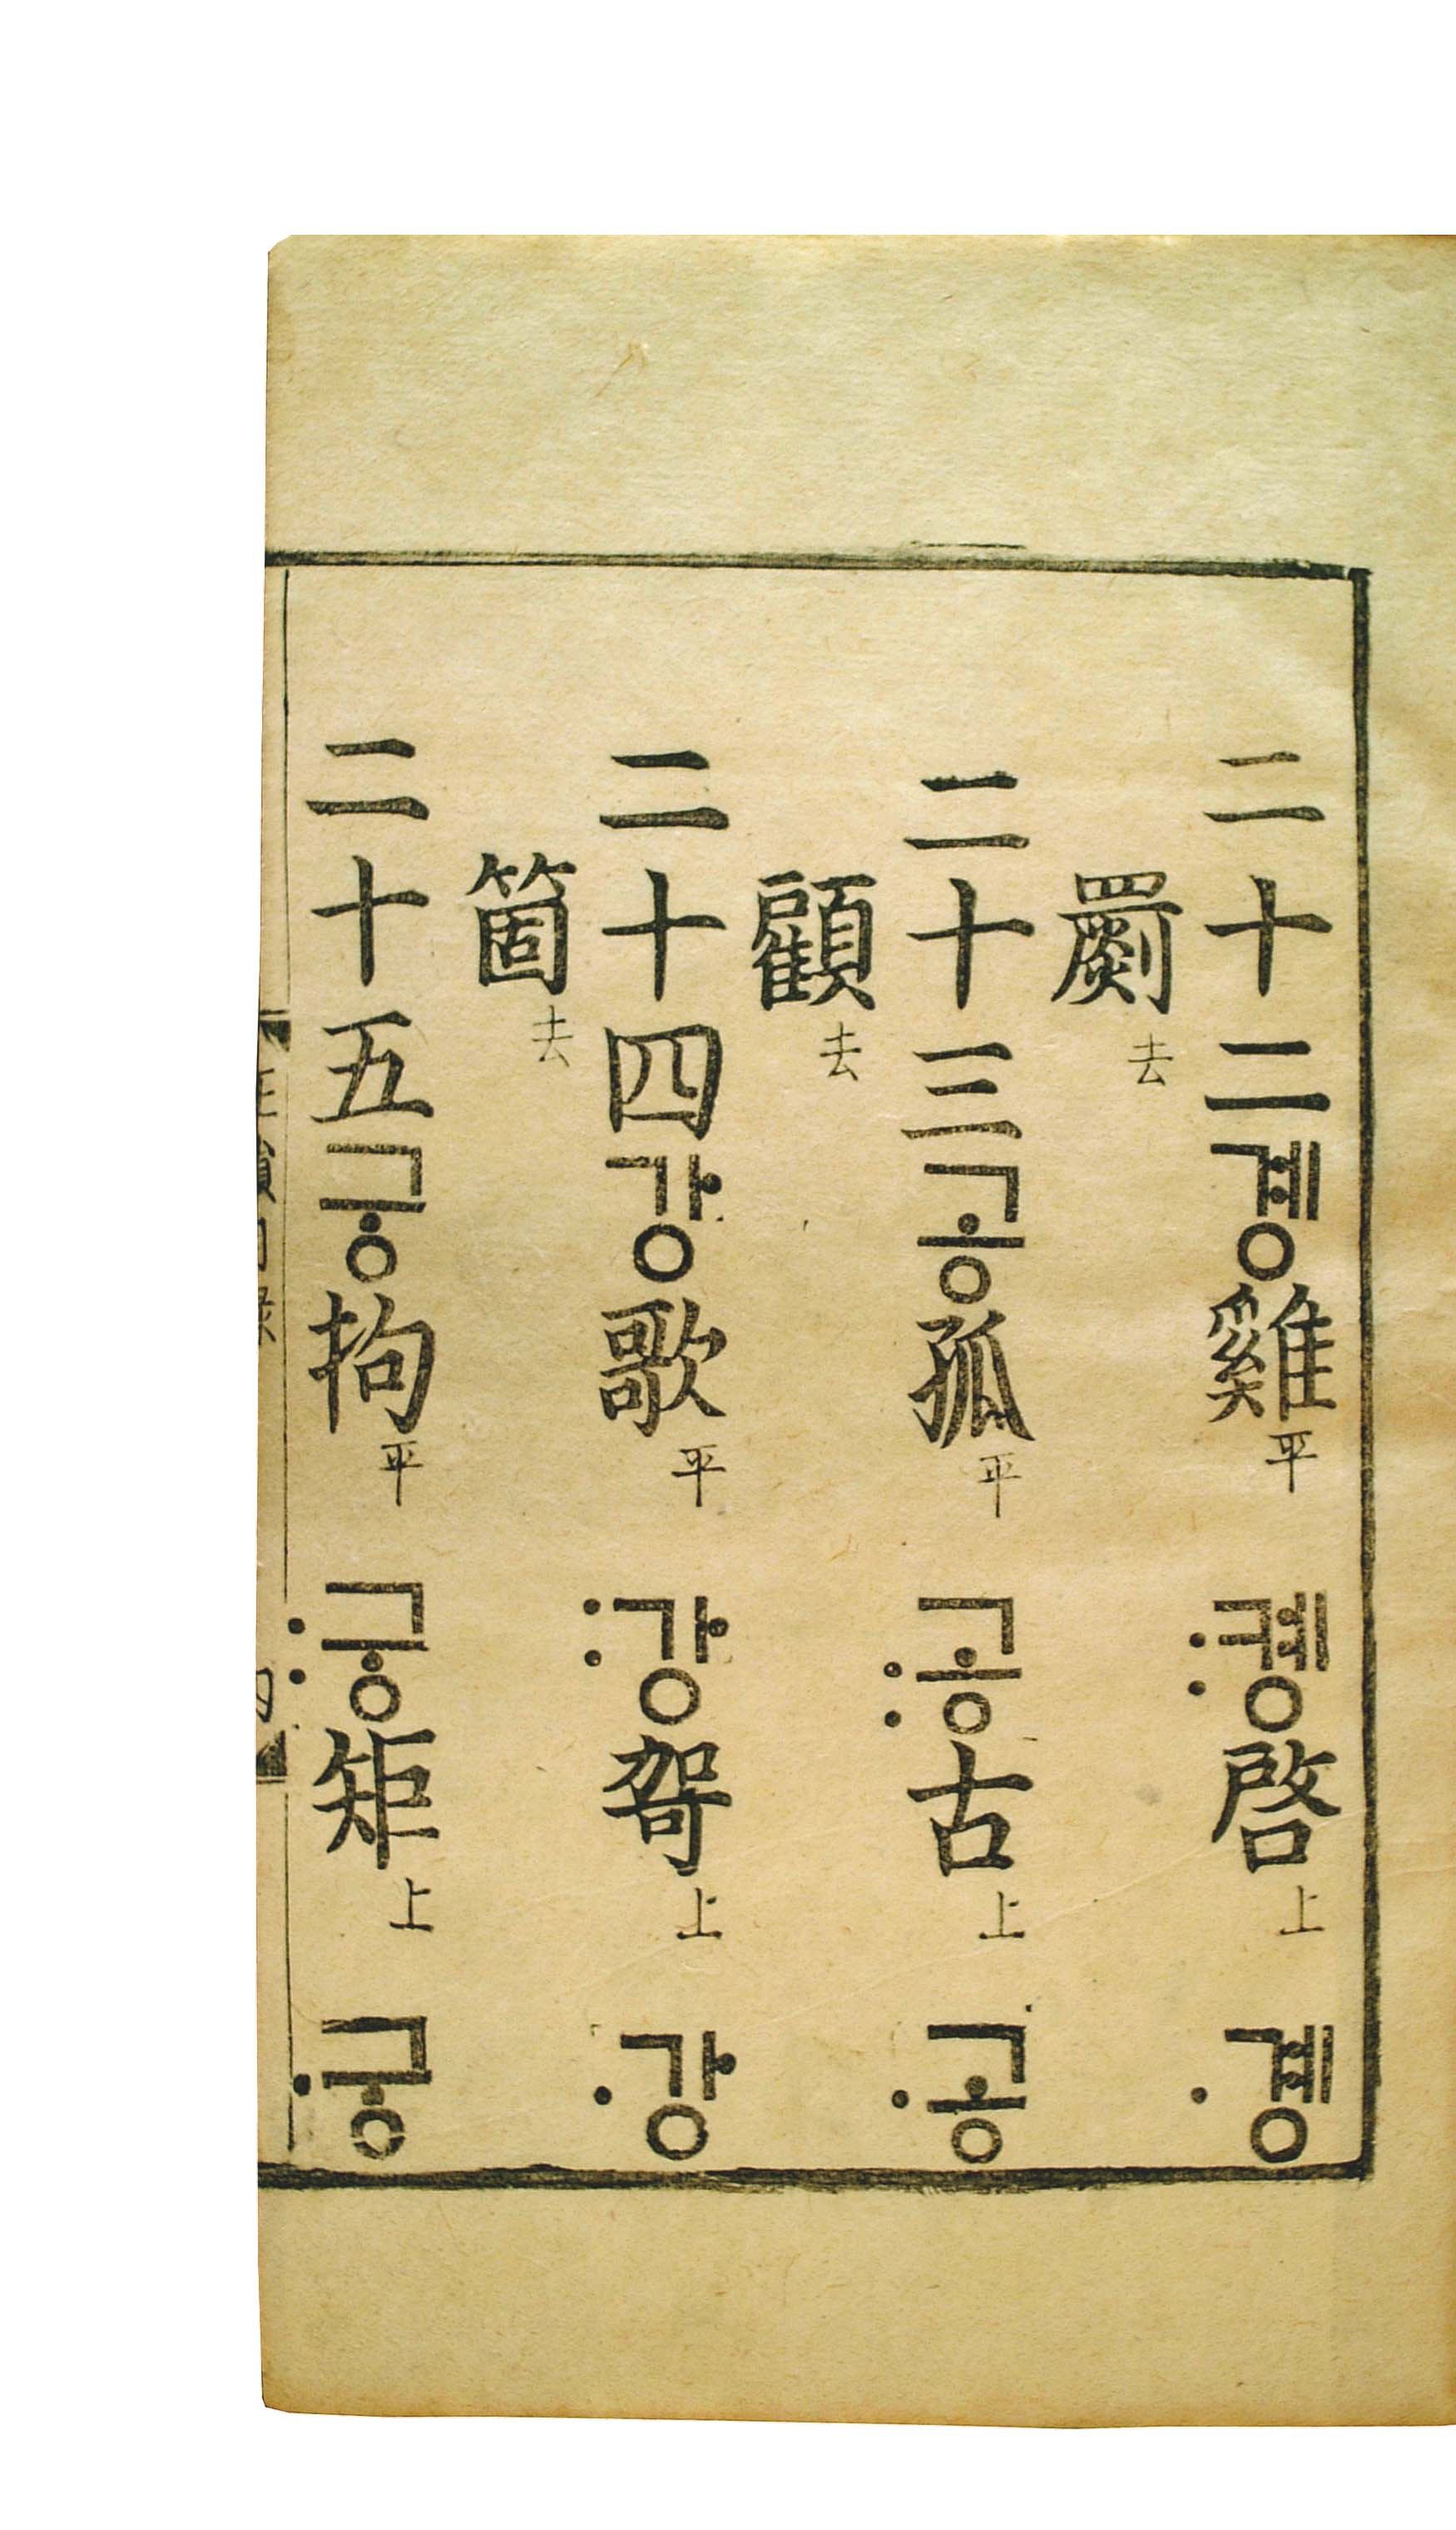 二十二곙雞平 콍〯啓上 곙〮
罽去
二十三공孤平 공〯古上 공〮
顧去
二十四강歌平 강〯哿上 강〮
箇去
二十五궁拘平 궁〯矩上 궁〮